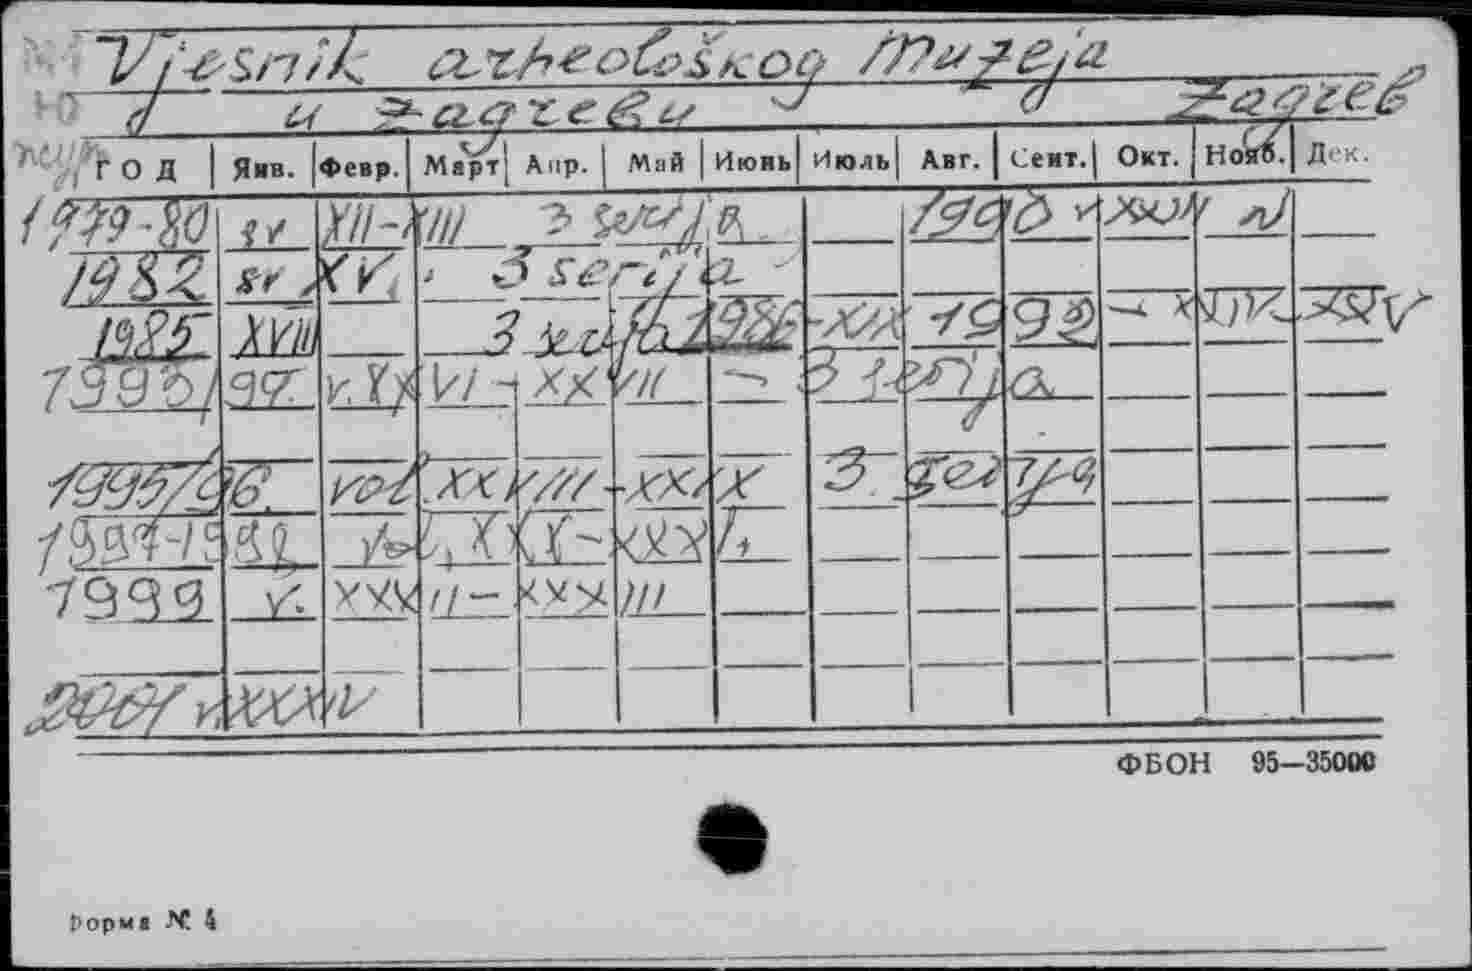 Vjesnik arheološkog muzeja
u Zagrebu Zagreb
ГОД Янв. Февр. Март Апр. Май Июнь Июль Авг. Сент. Окт. Нояб. Дек.
1979-80 sv XII-XIII 3 serija
1982 sv XV. 3 serija
1985 XVIII 3 serija 1986-XIX
v. XXVI-XXVII - 3 serija
1995/96. vol. XXVIII-XXIX 3. serija
XXX
1999 v. XXXII-XXXIII
2001 v XXXIV
ФБОН 95—35000
Форма № 4